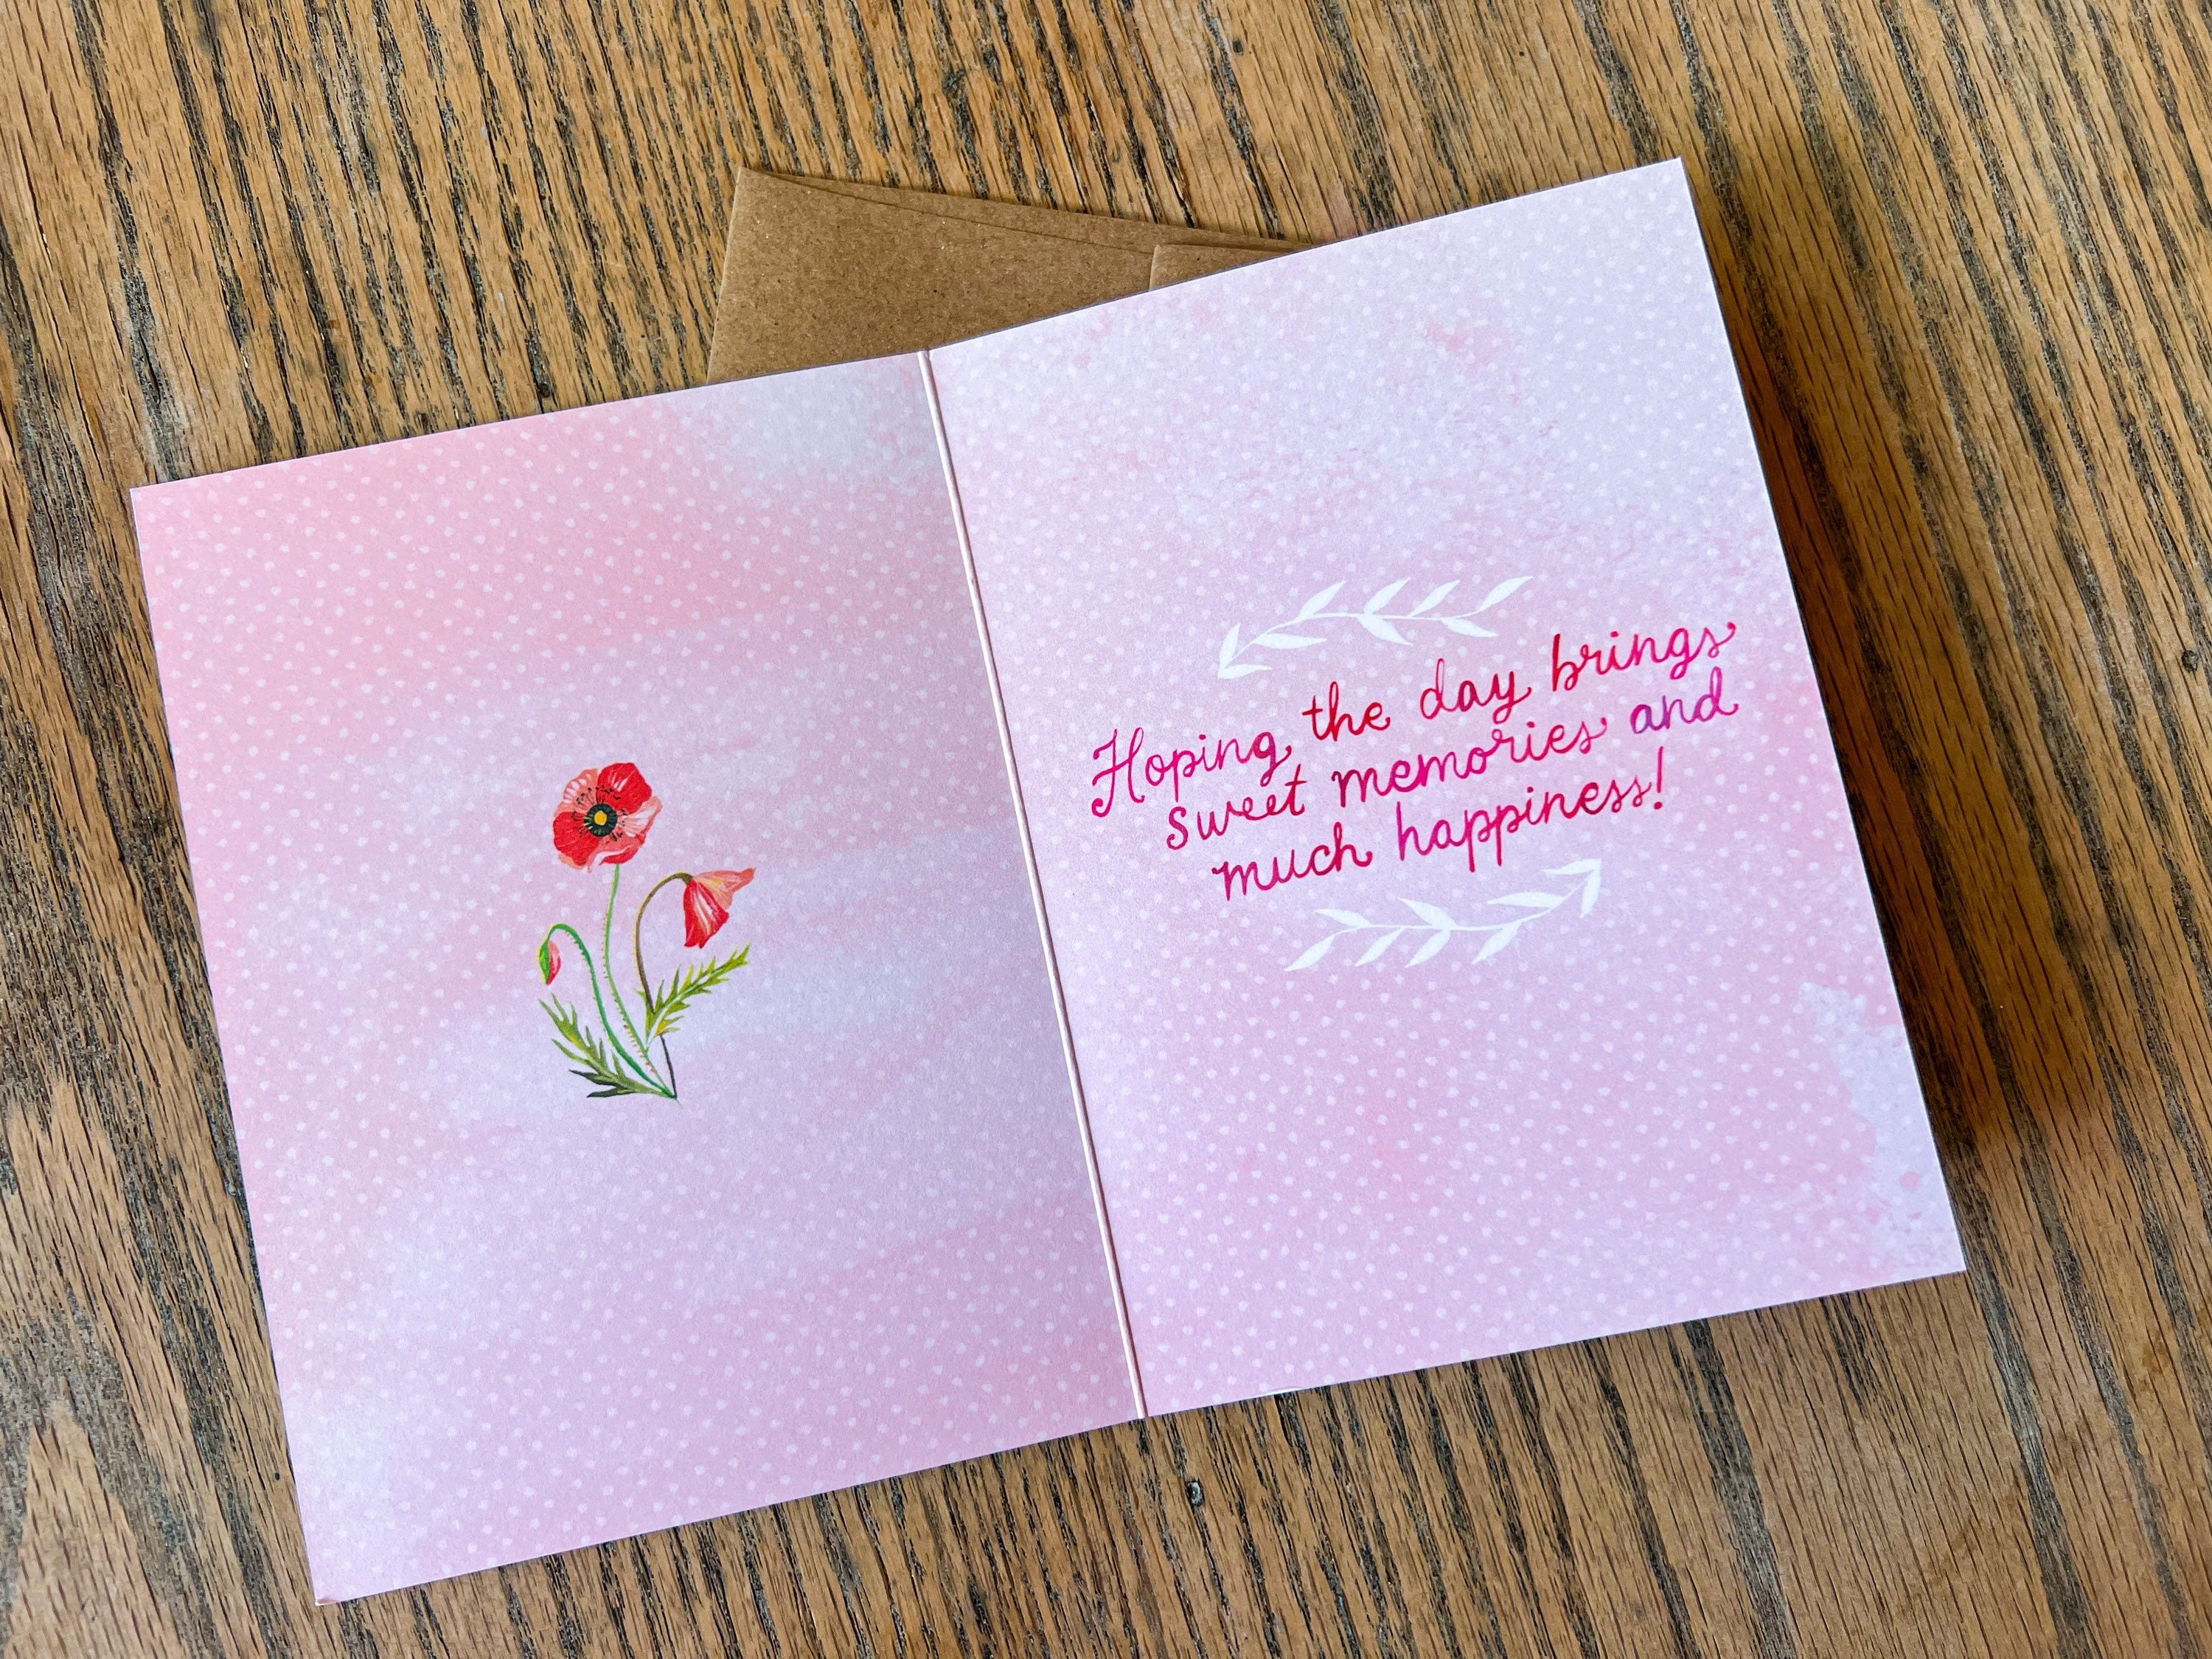 Hoping the day brings
sweet memories and
much happiness!